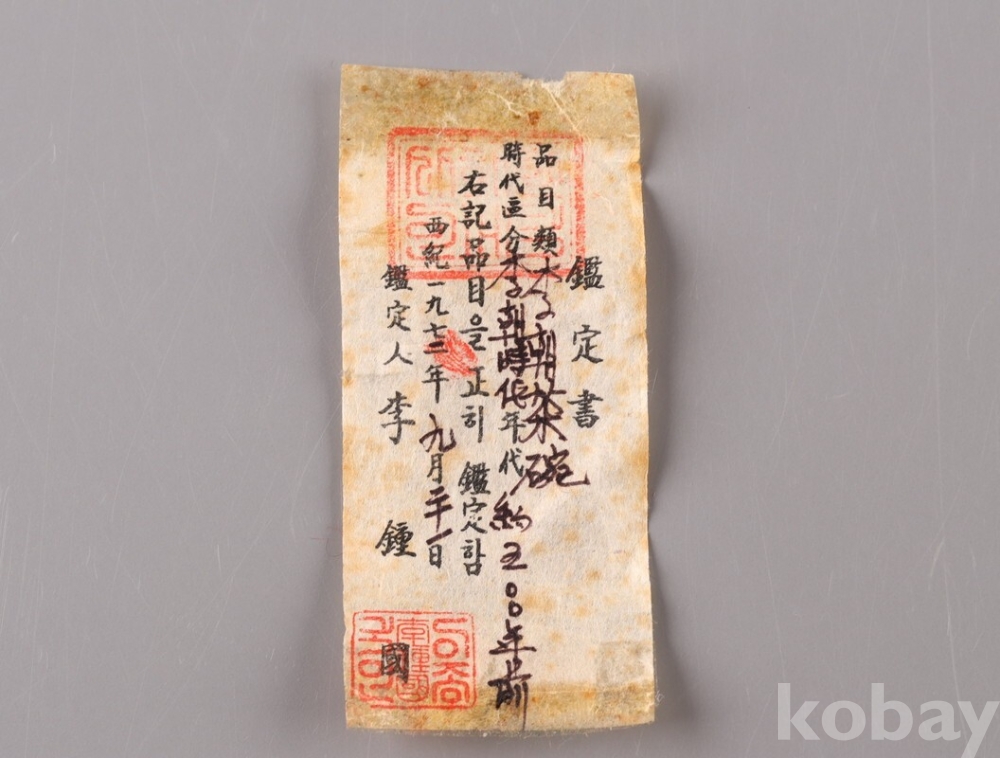 鑑定書
品目類 李朝茶碗
時代區分 李朝時代 年代 約五〇〇年前
右記品目을 正히 鑑定함
西紀一九七二年 九月二十一日
鑑定人 李鍾國
kobay